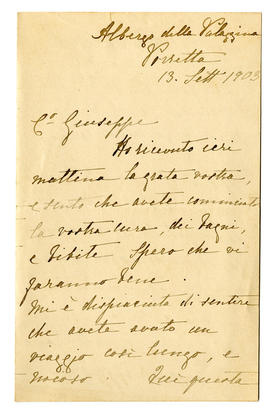 Albergo della Palazzina
Porretta
13. Sett 1903
C.o Giuseppe
Ho ricevuto ieri
mattina la grata vostra,
e sento che avete cominciato
la vostra cura, dei bagni,
e bibite spero che vi
faranno bene.
Mi è dispiaciuta di sentire
che avete avuto un
viaggio così lungo, e
noioso. Qui questa